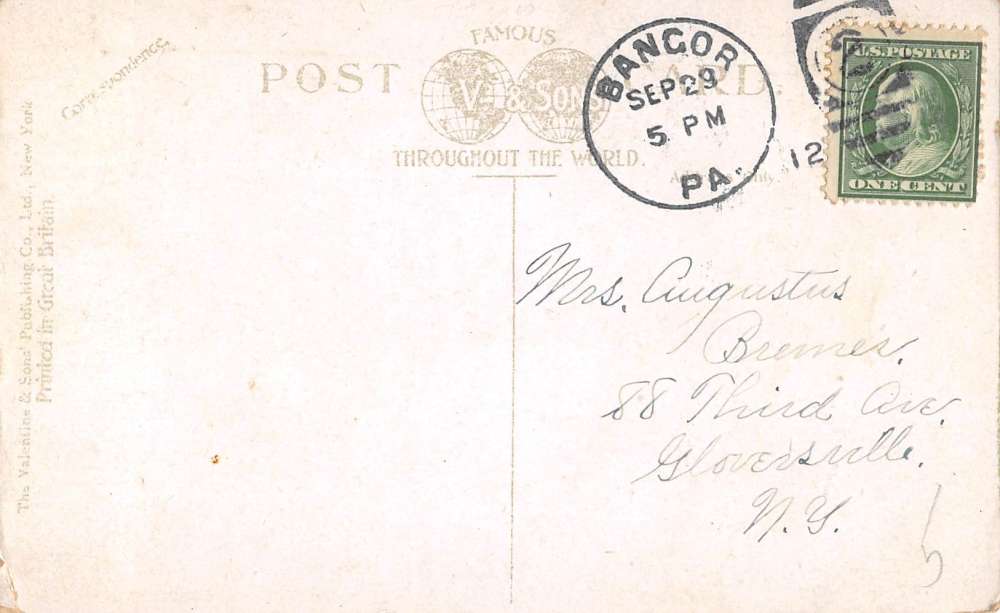 Correspondence.
FAMOUS
POST CARD
V. & SONS
THROUGHOUT THE WORLD.
BANGOR
SEP 29
5 PM
PA.
12
U.S. POSTAGE
ONE CENT
Mrs. Augustus
Bremer.
88 Third Ave.
Gloversville.
N.Y.
The Valentine & Sons' Publishing Co., Ltd., New York
Printed in Great Britain.